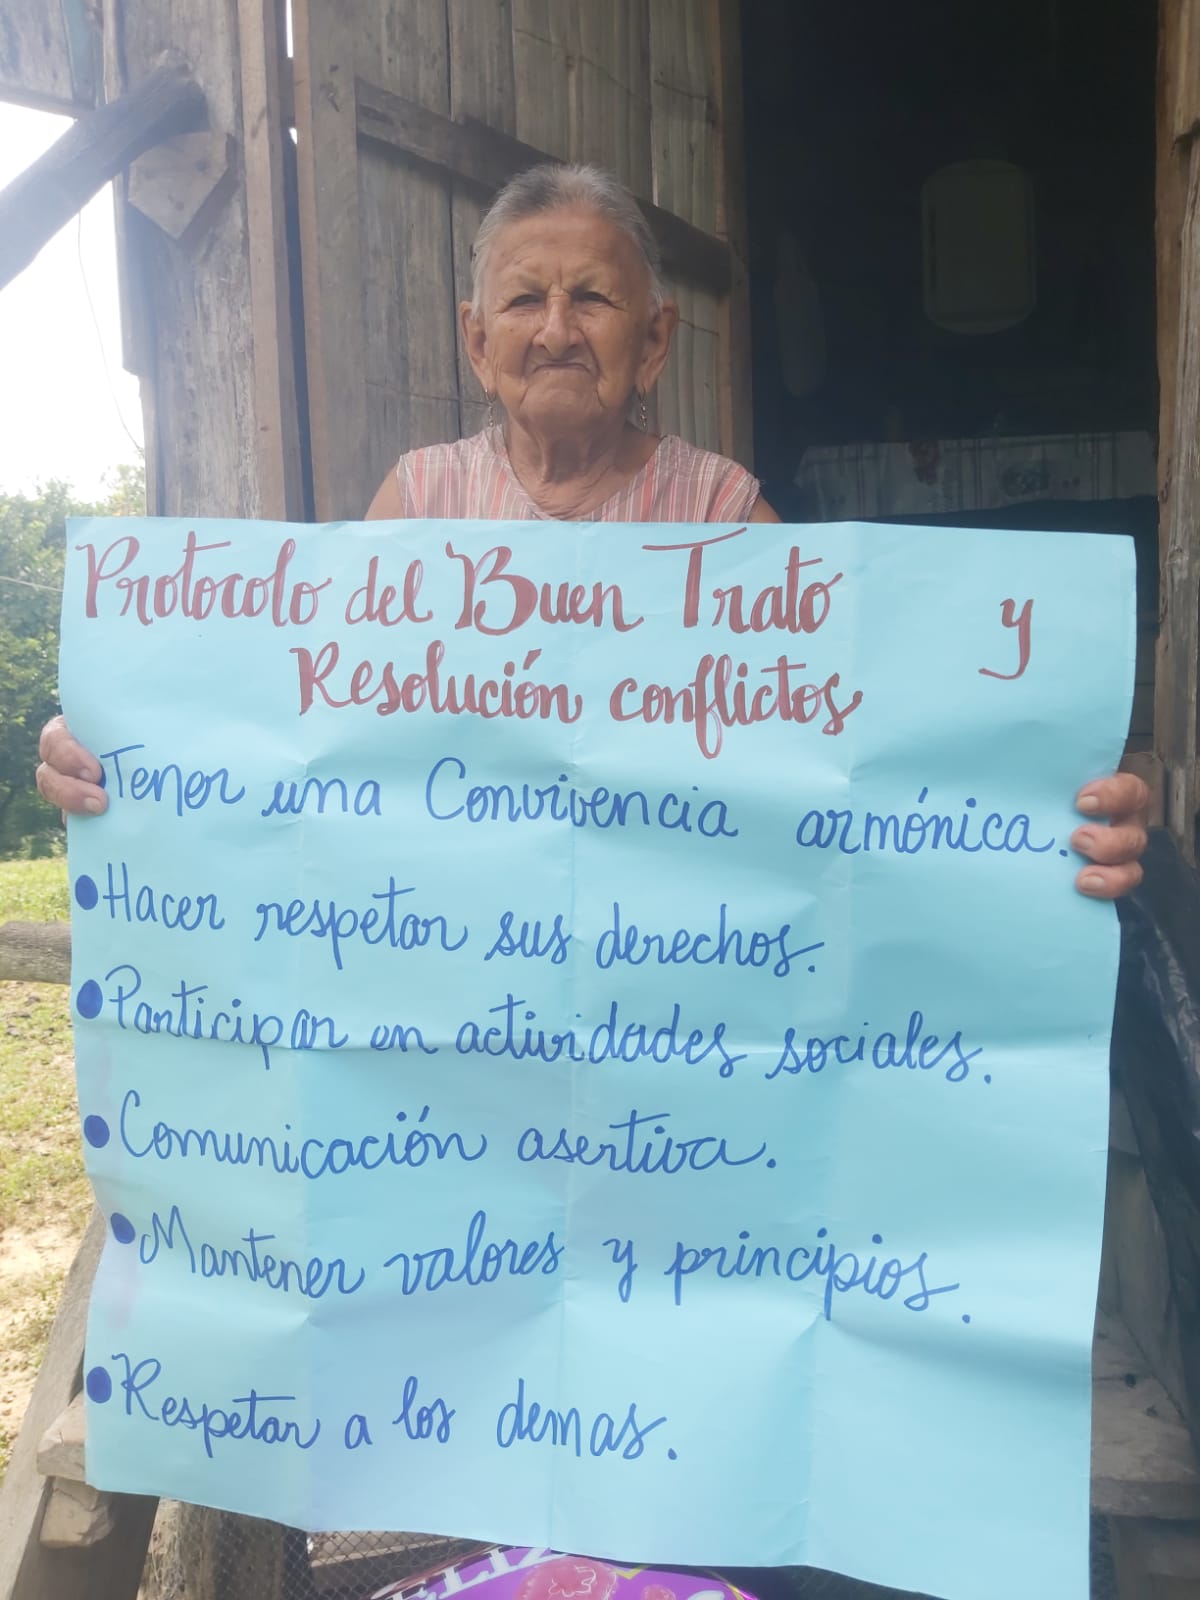 Protocolo del Buen Trato y
Resolución conflictos
Tener una Convivencia armónica.
• Hacer respetar sus derechos.
• Participar en actividades sociales.
• Comunicación asertiva.
• Mantener valores y principios.
• Respetar a los demas.
ELIZ